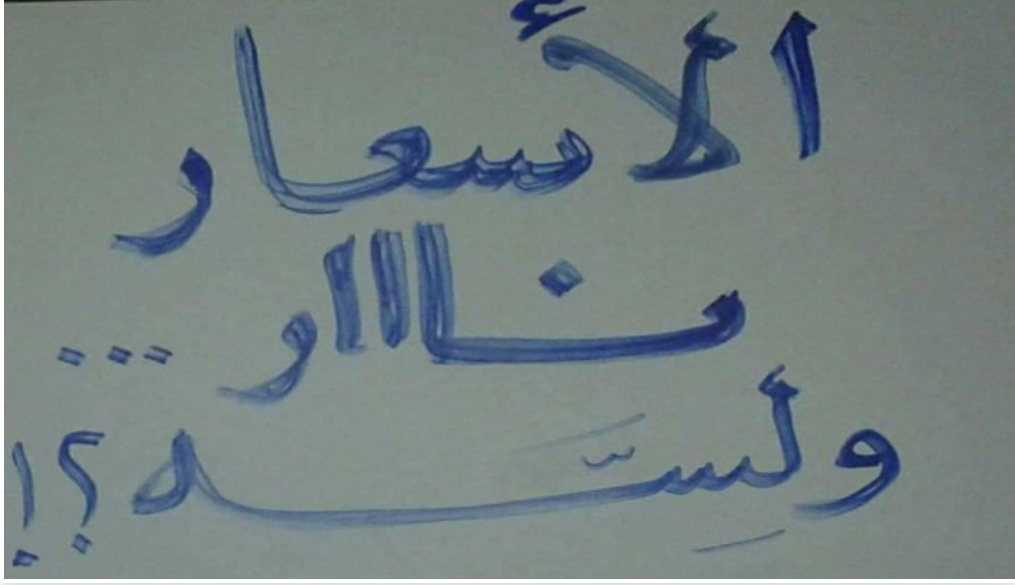 الأسعار
نااار ...
ولِسَّه ؟!